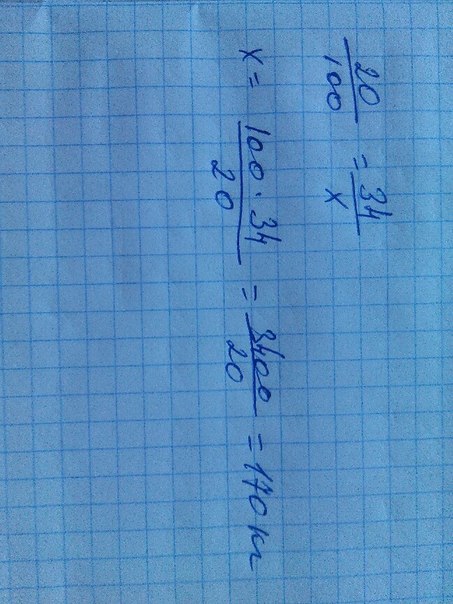 20/100 = 34/x
x = 100 · 34/20 = 3400/20 = 170 кг